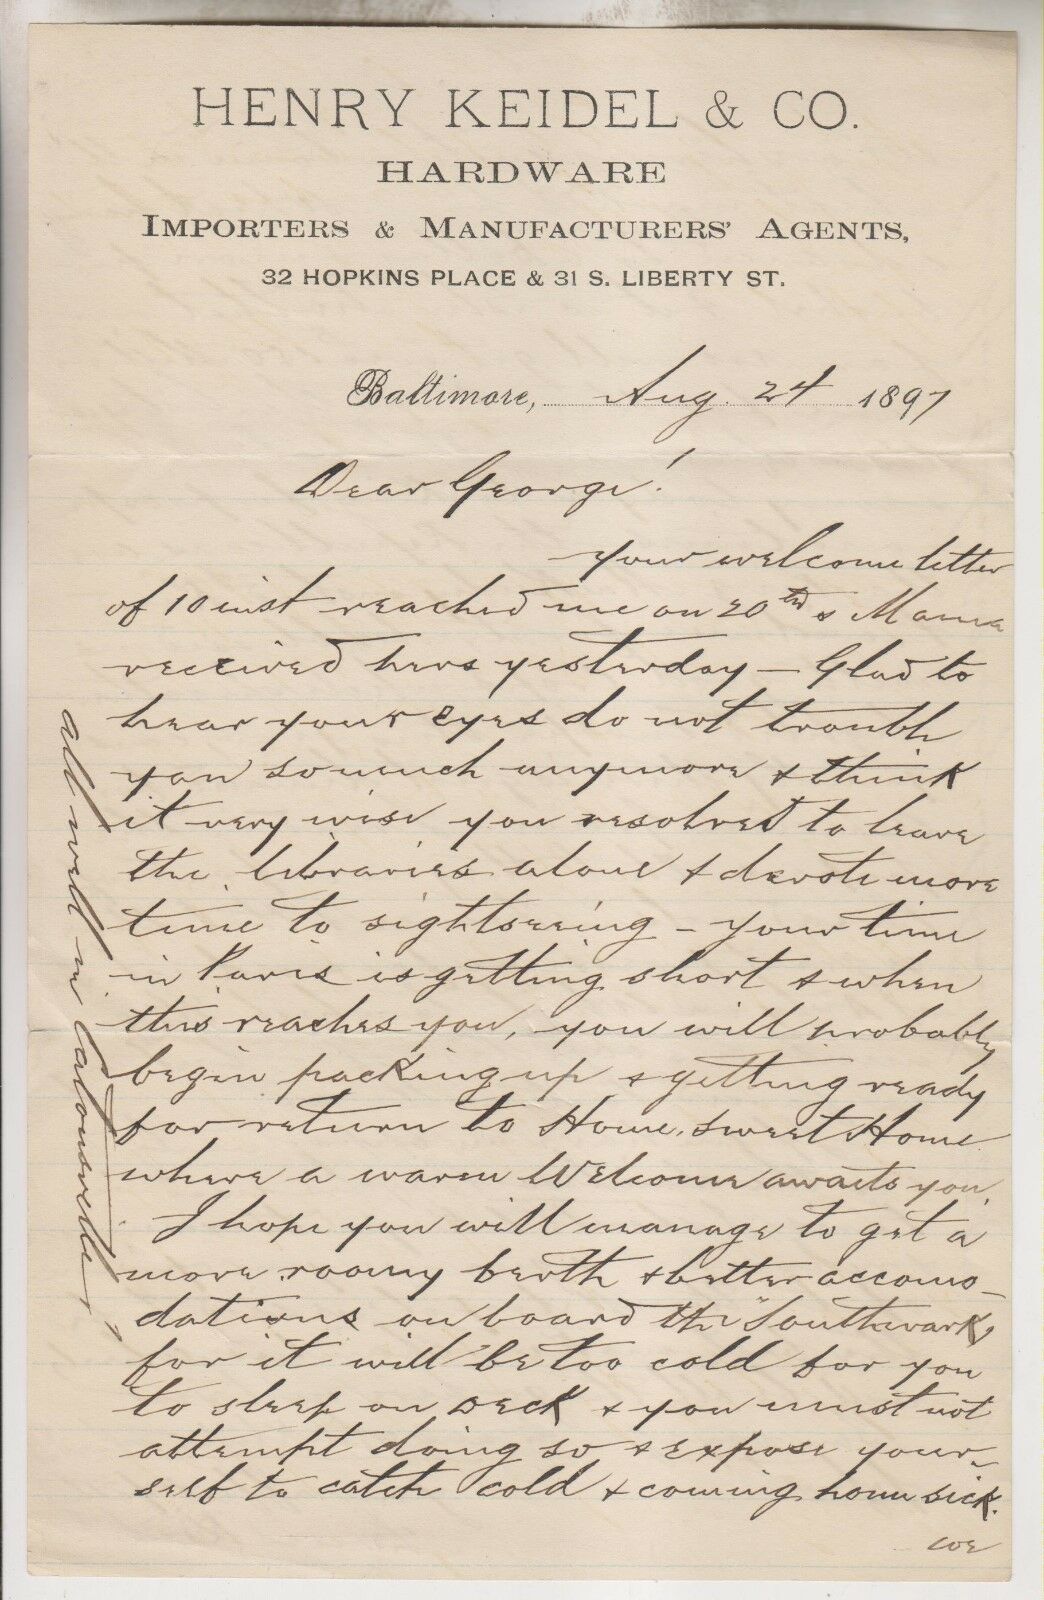 HENRY KEIDEL & CO.
HARDWARE
IMPORTERS & MANUFACTURERS' AGENTS,
32 HOPKINS PLACE & 31 S. LIBERTY ST.
Baltimore, Aug. 24 1897
Dear George!
your welcome letter
of 10 inst reached me on 20th & Mama
received hers yesterday — Glad to
hear your eyes do not trouble
you so much anymore & think
it very wise you resolved to leave
the libraries alone & devote more
time to sightseeing – your time
in Paris is getting short & when
this reaches you, you will probably
begin packing up & getting ready
for return to Home, sweet Home
where a warm Welcome awaits you.
I hope you will manage to get a
more roomy berth & better accomo-
dations on board the "Southwark,"
for it will be too cold for you
to sleep on deck & you must not
attempt doing so & expose your-
self to catch cold & coming home sick.
all well in Catonsville